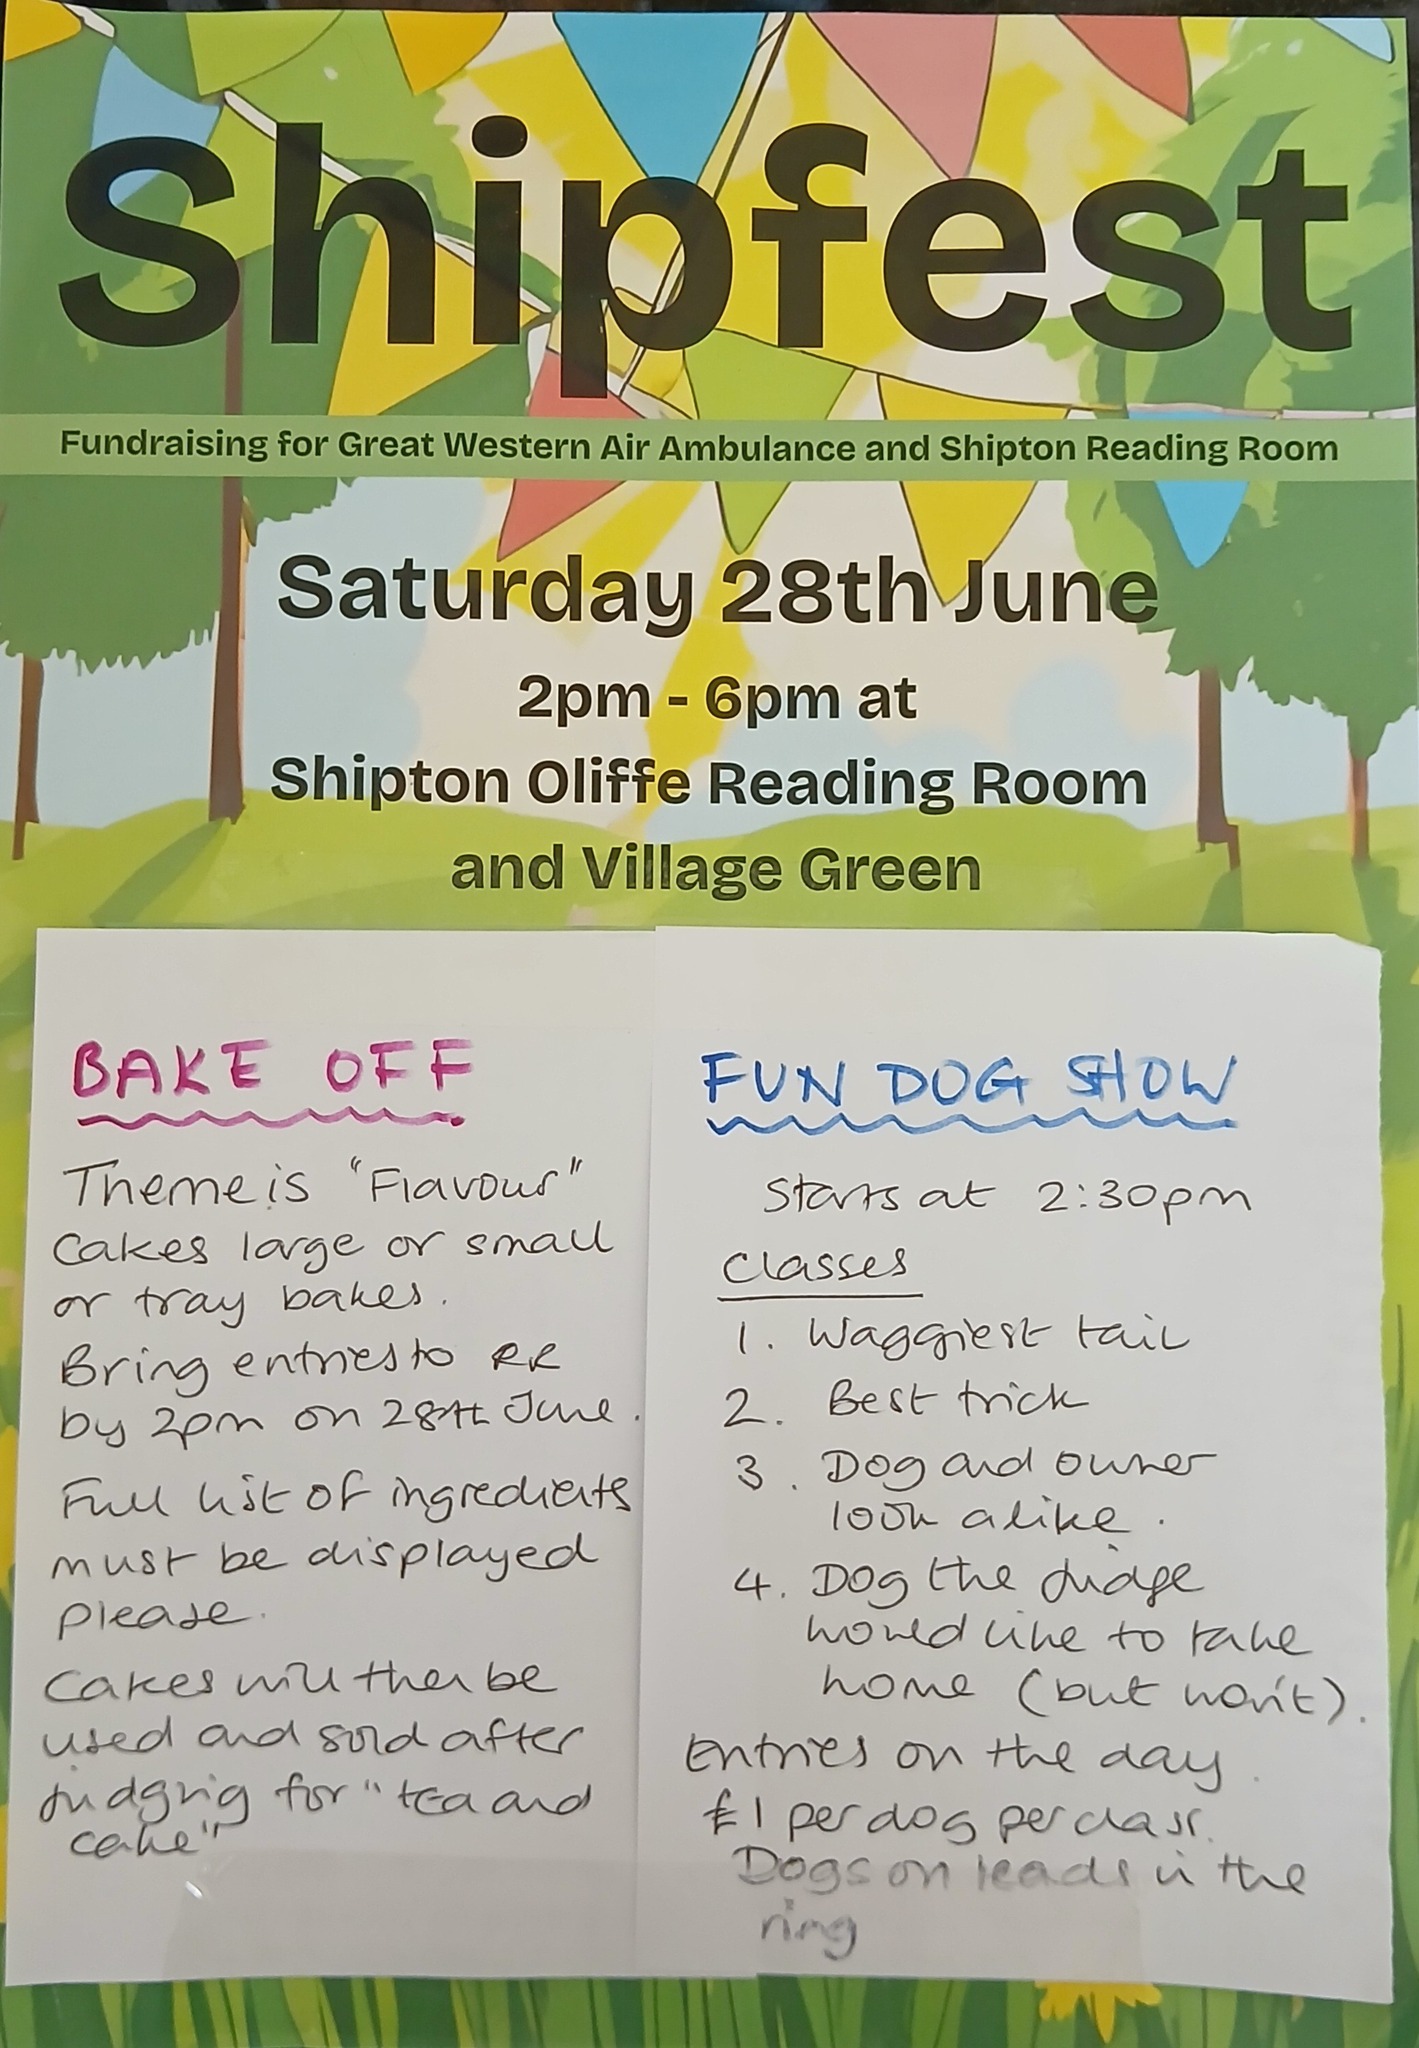 Shipfest
Fundraising for Great Western Air Ambulance and Shipton Reading Room
Saturday 28th June
2pm - 6pm at
Shipton Oliffe Reading Room
and Village Green
BAKE OFF
Theme is "Flavour"
Cakes large or small
or tray bakes.
Bring entries to RR
by 2pm on 28th June.
Full list of ingredients
must be displayed
please.
Cakes will then be
used and sold after
judging for "tea and
cake"
FUN DOG SHOW
Starts at 2:30pm
Classes
1. Waggiest tail
2. Best trick
3. Dog and owner
look alike.
4. Dog the judge
would like to take
home (but won't).
Entries on the day.
£1 per dog per class.
Dogs on leads in the
ring